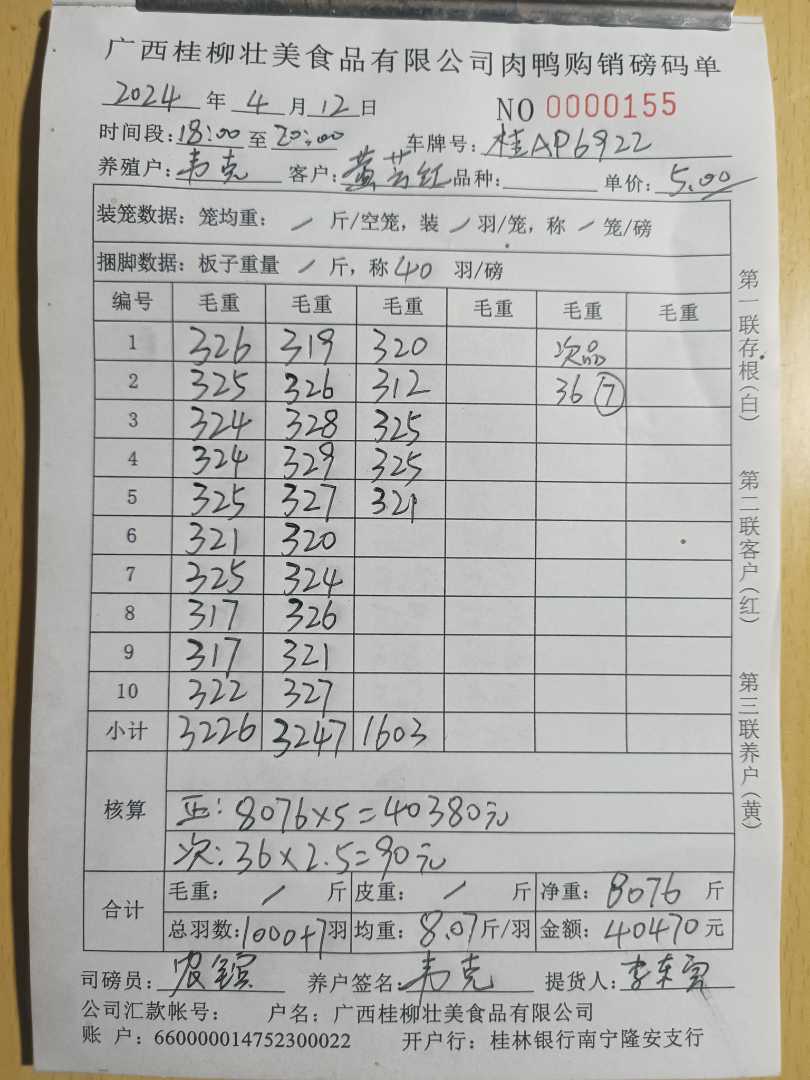 广西桂柳壮美食品有限公司肉鸭购销磅码单
2024 年 4 月 12 日 NO 0000155
时间段: 18:00 至 20:00 车牌号: 桂AP6922
养殖户: 韦克 客户: 黄芸红 品种: 单价: 5.00
装笼数据: 笼均重: / 斤/空笼, 装 / 羽/笼, 称 / 笼/磅
捆脚数据: 板子重量 / 斤, 称 40 羽/磅
编号 毛重 毛重 毛重 毛重 毛重 毛重
1 326 319 320 次品
2 325 326 312 36 ⑦
3 324 328 325
4 324 329 325
5 325 327 321
6 321 320
7 325 324
8 317 326
9 317 321
10 322 327
小计 3226 3247 1603
核算
正: 8076×5=40380元
次: 36×2.5=90元
合计
毛重: / 斤 皮重: / 斤 净重: 8076 斤
总羽数: 1000+7 羽 均重: 8.07 斤/羽 金额: 40470 元
司磅员: 养户签名: 韦克 提货人:
公司汇款帐号: 户名: 广西桂柳壮美食品有限公司
账 户: 660000014752300022 开户行: 桂林银行南宁隆安支行
第一联存根(白)
第二联客户(红)
第三联养户(黄)